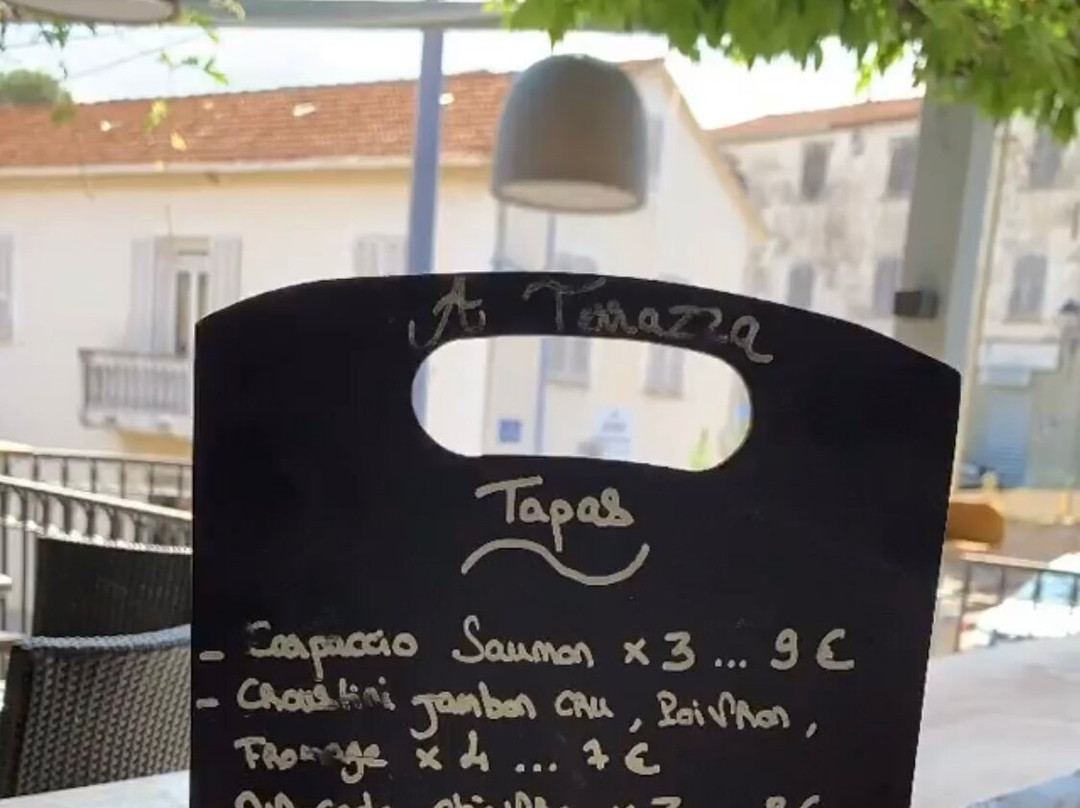 A Terrazza
Tapas
- Carpaccio Saumon x 3 ... 9 €
- Croustini jambon cru, Poivron,
Fromage x 4 ... 7 €